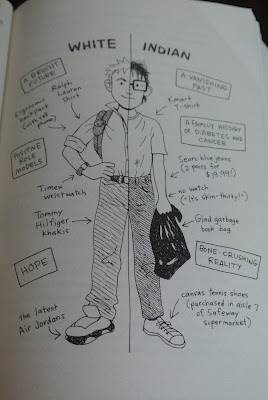 WHITE INDIAN
A BRIGHT
FUTURE
Ralph
Lauren
Shirt
Ergonomic
backpack
POSITIVE
ROLE
MODELS
Timex
wristwatch
Tommy
Hilfiger
khakis
HOPE
the latest
Air Jordans
A VANISHING
PAST
Kmart
T-shirt
A FAMILY HISTORY
OF DIABETES AND
CANCER
Sears blue jeans
(2 pairs for
$19.99!)
no watch
("It's skin-thirty!")
Glad garbage
book bag
BONE-CRUSHING
REALITY
canvas tennis shoes
(purchased in aisle 7
of Safeway
supermarket)